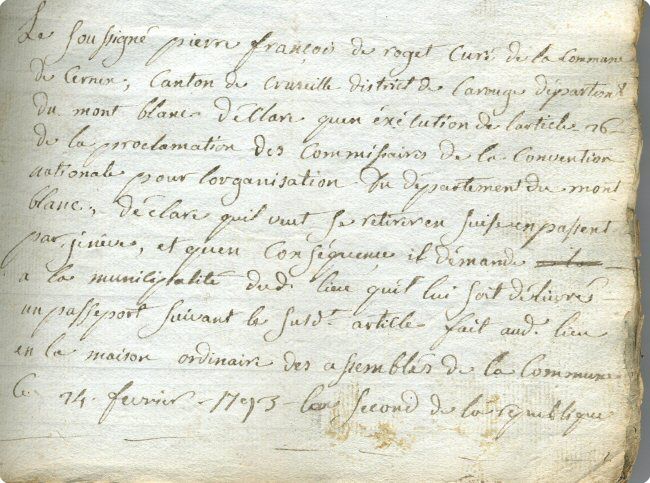 Le soussigné pierre françois de roget Curé de la Commune
de Cernex, Canton de Cruseille district de Carouge départemt
du mont blanc déClare quen éxécution de larticle 26
de la proclamation des Commissaires de la Convention
nationale pour lorganisation du département du mont
blanc, déclare qu'il veut se retirer en suisse en passent
par genève, et quen Conséquence il démande
a la municipalité dud. lieu quil lui soit délivré
un passeport suivant le susdt. article fait aud. lieu
en la maison ordinaire des assemblés de la Commune
le 24 fevrier 1793 lan second de la république